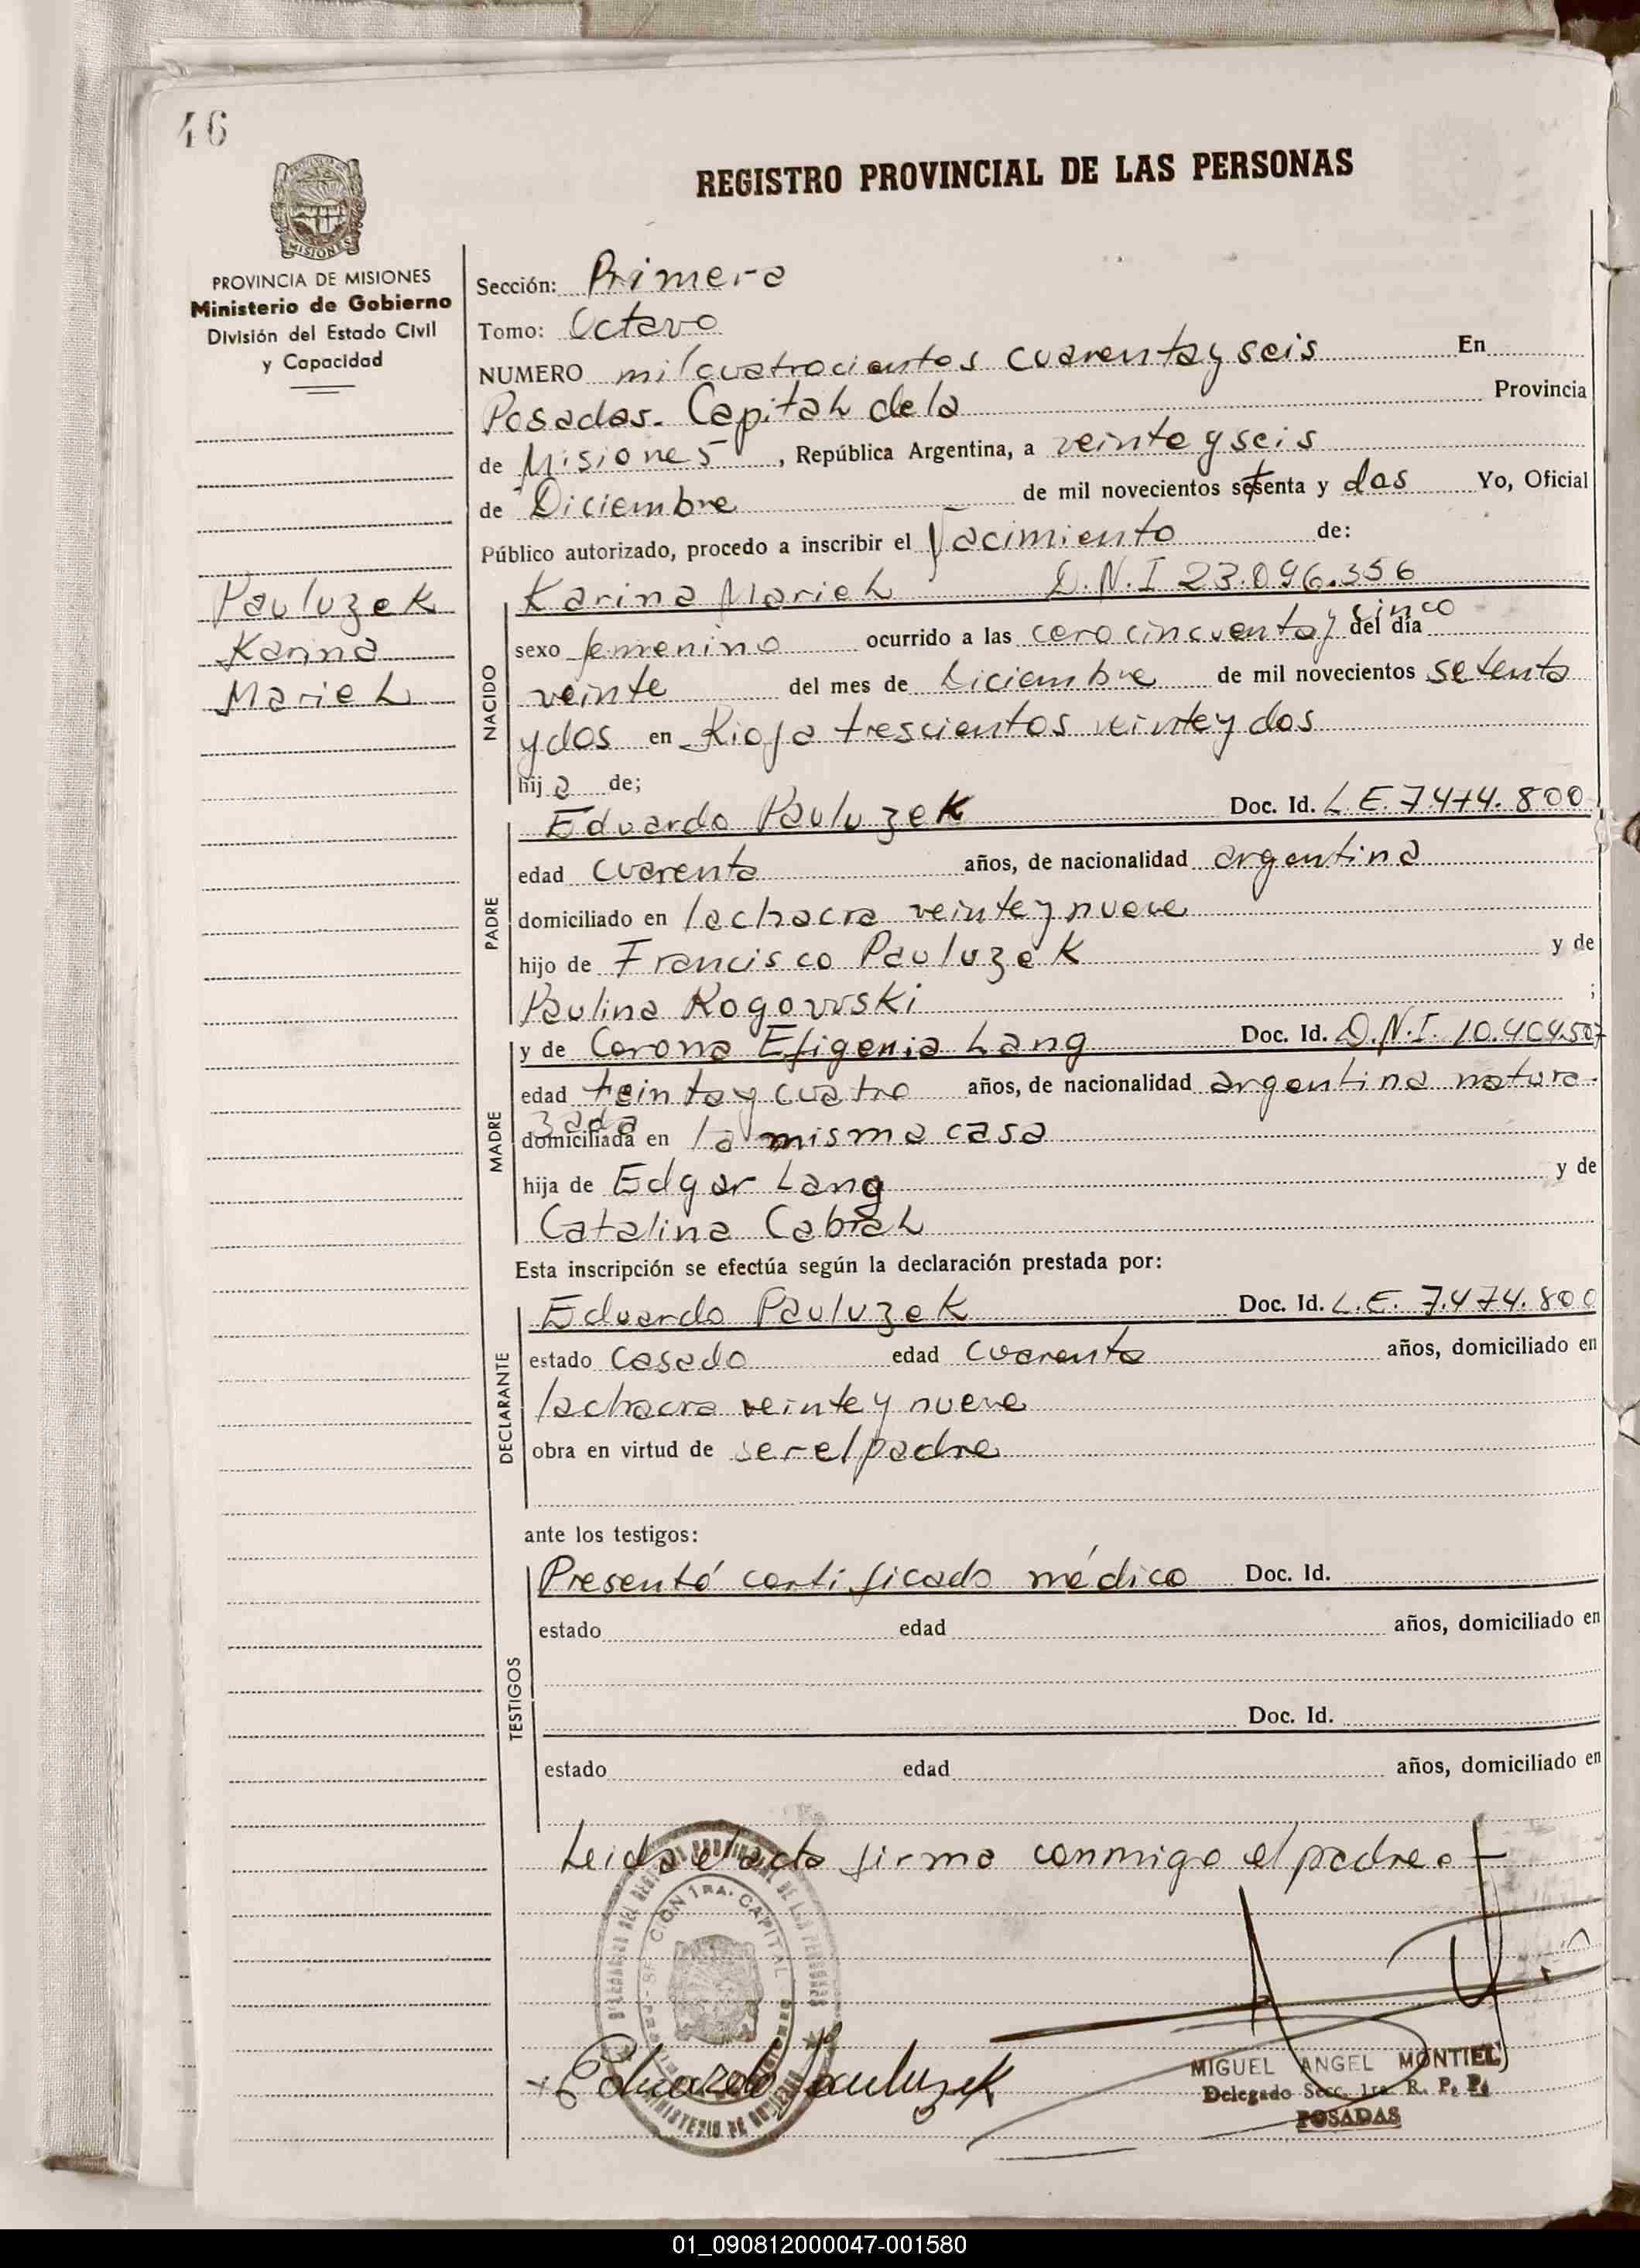 46
REGISTRO PROVINCIAL DE LAS PERSONAS
MISIONES
PROVINCIA DE MISIONES
Ministerio de Gobierno
División del Estado Civil
y Capacidad
Pauluzek
Karina
Mariel
Sección: Primera
Tomo: Octavo
NUMERO mil cuatrocientos cuarenta y seis En
Posadas. Capital de la Provincia
de Misiones, República Argentina, a veinte y seis
de Diciembre de mil novecientos setenta y dos Yo, Oficial
Público autorizado, procedo a inscribir el Nacimiento de:
NACIDO
Karina Mariel D.N.I 23.096.356
sexo femenino ocurrido a las cero cincuenta y cinco del día
veinte del mes de Diciembre de mil novecientos setenta
y dos en Rioja trescientos veinte y dos
hija de;
PADRE
Eduardo Pauluzek Doc. Id. L.E. 7.474.800
edad cuarenta años, de nacionalidad argentina
domiciliado en la chacra veinte y nueve
hijo de Francisco Pauluzek y de
Paulina Rogowski ;
MADRE
y de Corona Efigenia Lang Doc. Id. D.N.I. 10.404.507
edad treinta y cuatro años, de nacionalidad argentina natura-
zada
domiciliada en la misma casa
hija de Edgar Lang y de
Catalina Cabral
Esta inscripción se efectúa según la declaración prestada por:
DECLARANTE
Eduardo Pauluzek Doc. Id. L.E. 7.474.800
estado casado edad cuarenta años, domiciliado en
la chacra veinte y nueve
obra en virtud de ser el padre
ante los testigos:
TESTIGOS
Presentó certificado médico Doc. Id.
estado edad años, domiciliado en
Doc. Id.
estado edad años, domiciliado en
Leida el acta firma conmigo el padre.
SECCION 1RA. CAPITAL
MINISTERIO DE GOBIERNO
Eduardo Pauluzek
MIGUEL ANGEL MONTIEL
Delegado Secc. 1ra. R. P. P.
POSADAS
01_090812000047-001580